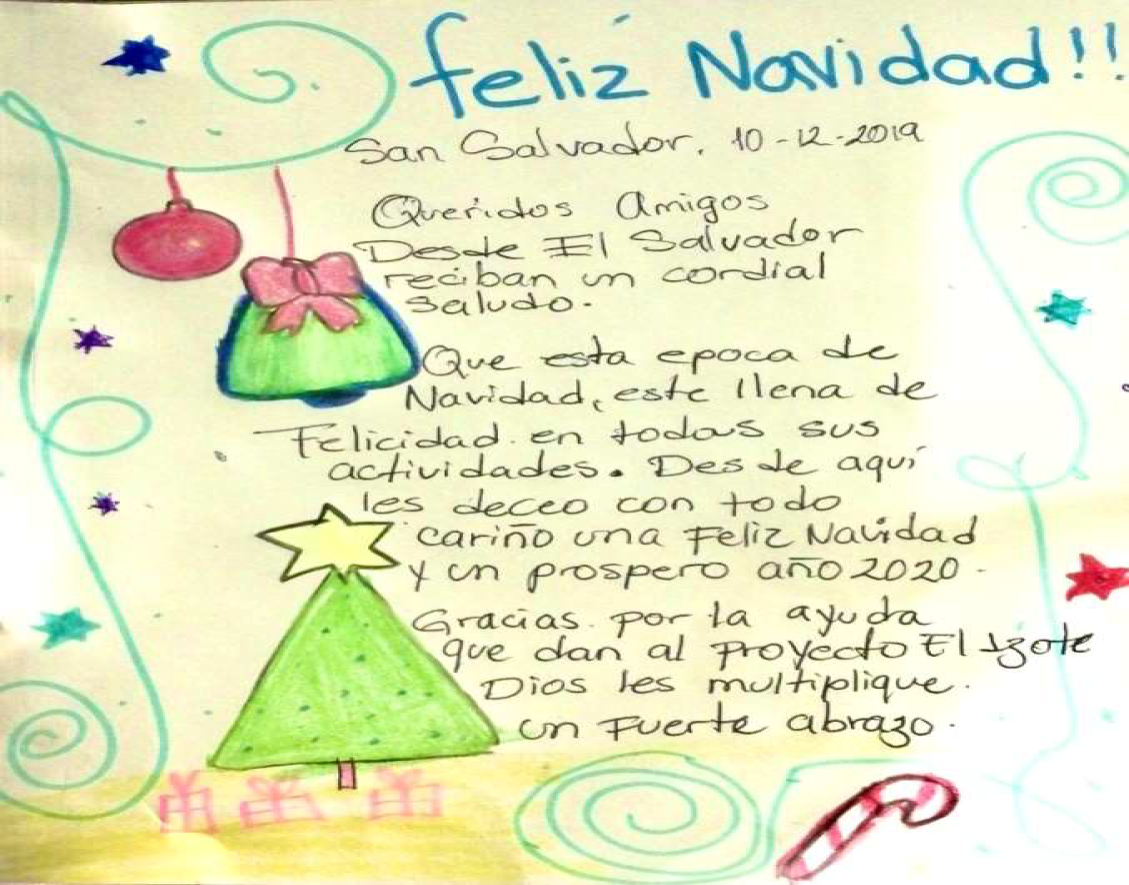 feliz Navidad!!
San Salvador, 10-12-2019
Queridos Amigos
Desde El Salvador
reciban un cordial
saludo.
Que esta epoca de
Navidad, este llena de
Felicidad en todas sus
actividades. Desde aquí
les deceo con todo
cariño una Feliz Navidad
y un prospero año 2020.
Gracias por la ayuda
que dan al proyecto El Izote
Dios les multiplique.
un Fuerte abrazo.